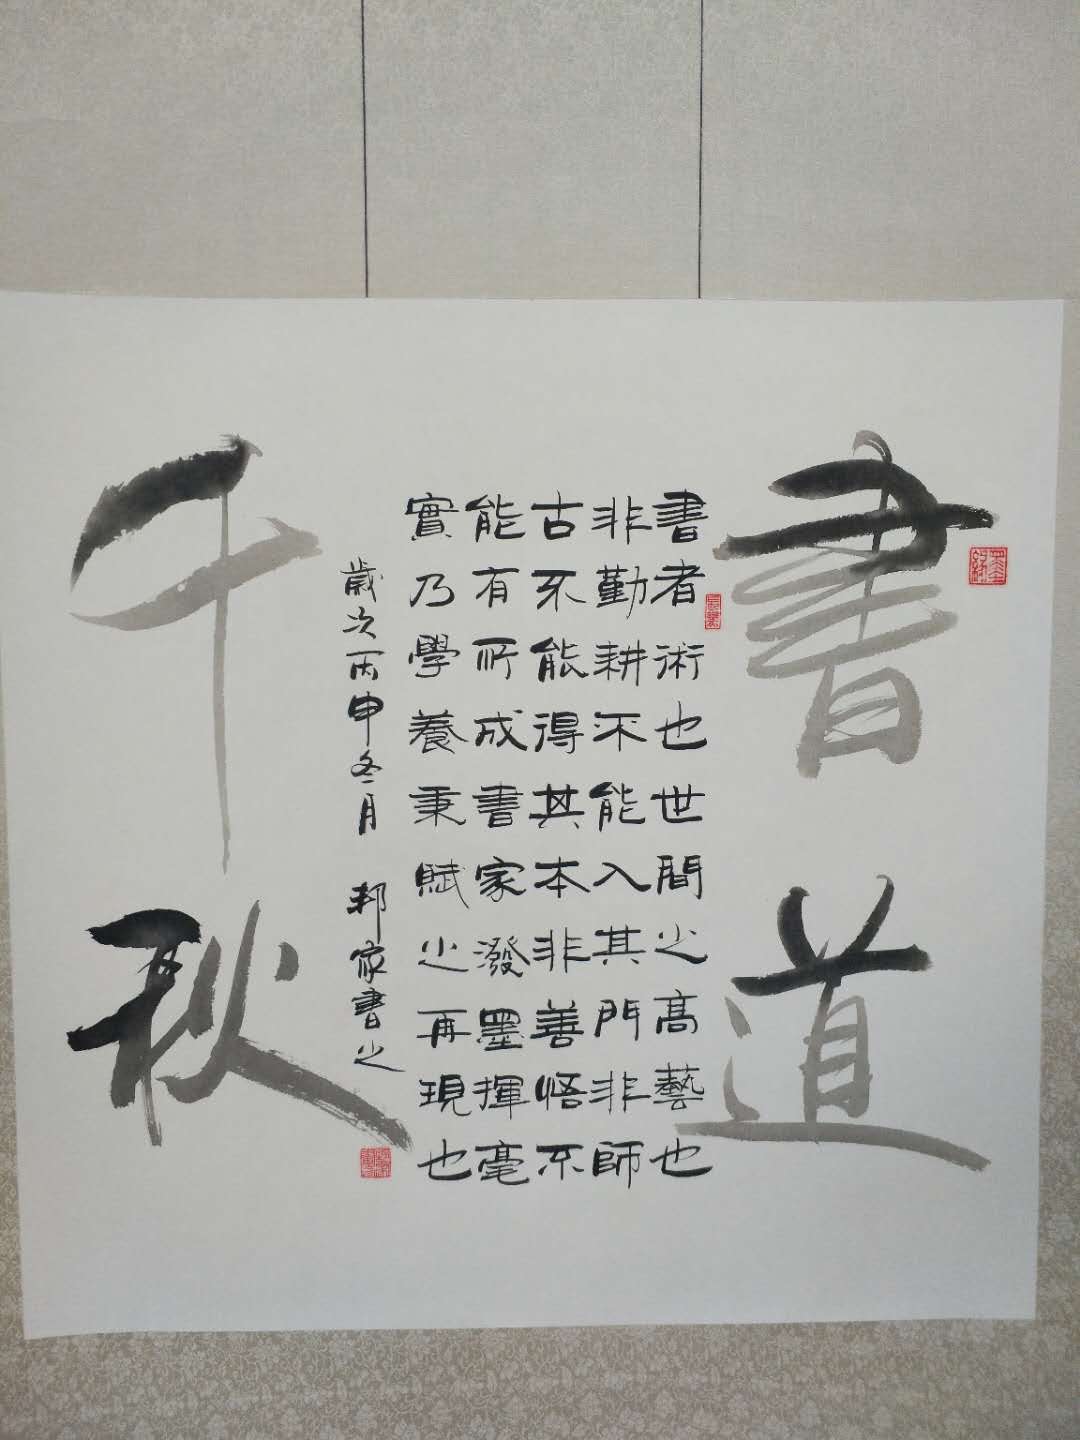 書道
書者術也世間之高藝也
非勤耕不能入其門非師
古不能得其本非善悟不
能有所成書家潑墨揮毫
實乃學養秉賦之再現也
千秋
歲次丙申冬月 邦家書之